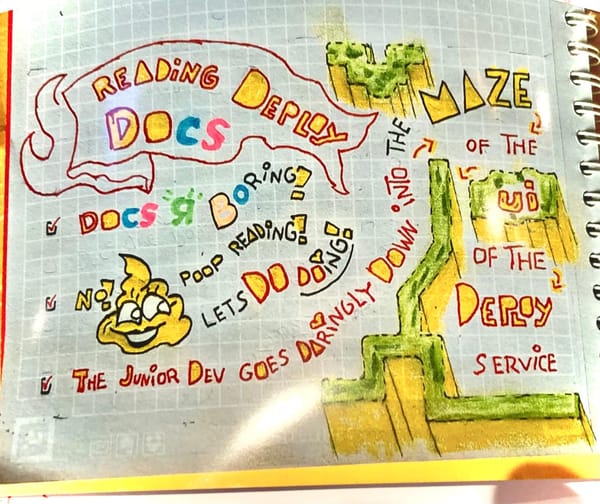 READING DEPLOY
DOCS
DOCS "Я" BORING?
NO! POOP READING!
LETS DO DOING!
THE JUNIOR DEV GOES DARINGLY DOWN INTO THE
MAZE
OF THE
ui
OF THE
DEPLOY
SERVICE